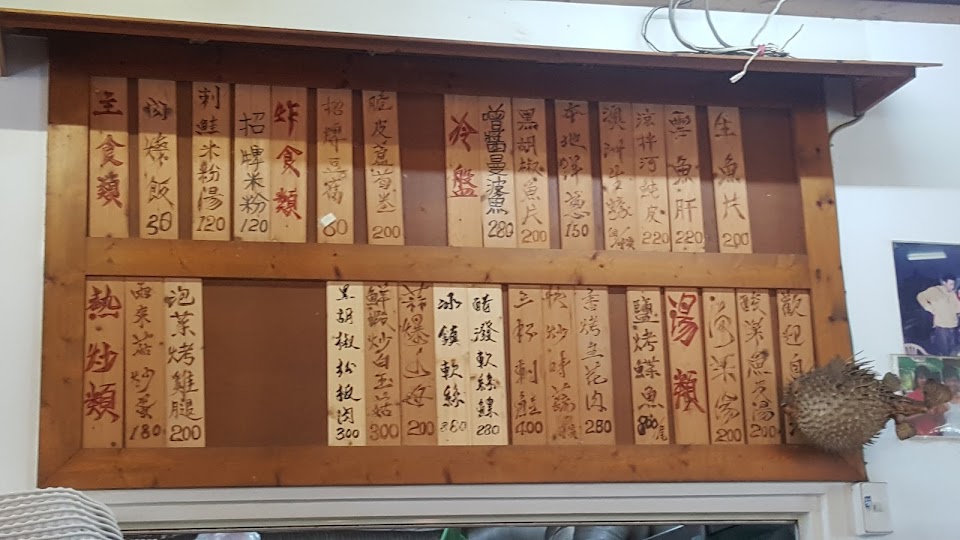 主食類
肉燥飯 30
刺鮭米粉湯 120
招牌米粉 120
炸食類
招牌豆腐 60
脆皮蘆筍卷 200
冷盤
曾醬曼波魚 280
黑胡椒魚片 200
本地鮮蔥 150
涼拌河純皮 220
魚肝 220
生魚片 200
熱炒類
雨來菇炒蛋 180
泡菜烤雞腿 200
黑胡椒松板肉 300
鮮蚵炒白玉菇 300
200
冰鎮軟絲 280
醋潑軟絲鰾 280
三杯刺鮭 400
快炒時蔬
香烤五花肉 280
鹽烤鰈魚 800 尾
湯類
200
酸菜魚肚湯 200
歡迎自